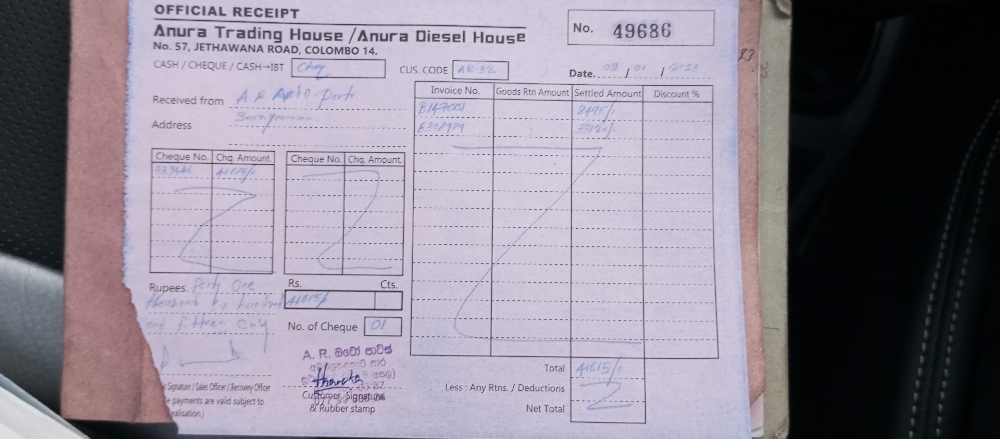 OFFICIAL RECEIPT
Anura Trading House /Anura Diesel House
No. 57, JETHAWANA ROAD, COLOMBO 14.
No. 49686
CASH / CHEQUE / CASH→IBT Chq
CUS. CODE AR 32
Date.. 09 / 01 / 2023
Received from A R Auto parts
Address
Cheque No. Chq. Amount
41615/-
Cheque No. Chq. Amount
Invoice No. Goods Rtn Amount Settled Amount Discount %
8495/-
33120/-
Rupees. forty One
thousand six hundred
and fifteen only
Rs. Cts.
41615/-
No. of Cheque 01
A. R. ඔටෝ පාට්ස්
Customer Signature
& Rubber stamp
Signature / Sales Officer / Recovery Officer
payments are valid subject to
ealisation.)
Total 41615/-
Less : Any Rtns. / Deductions
Net Total